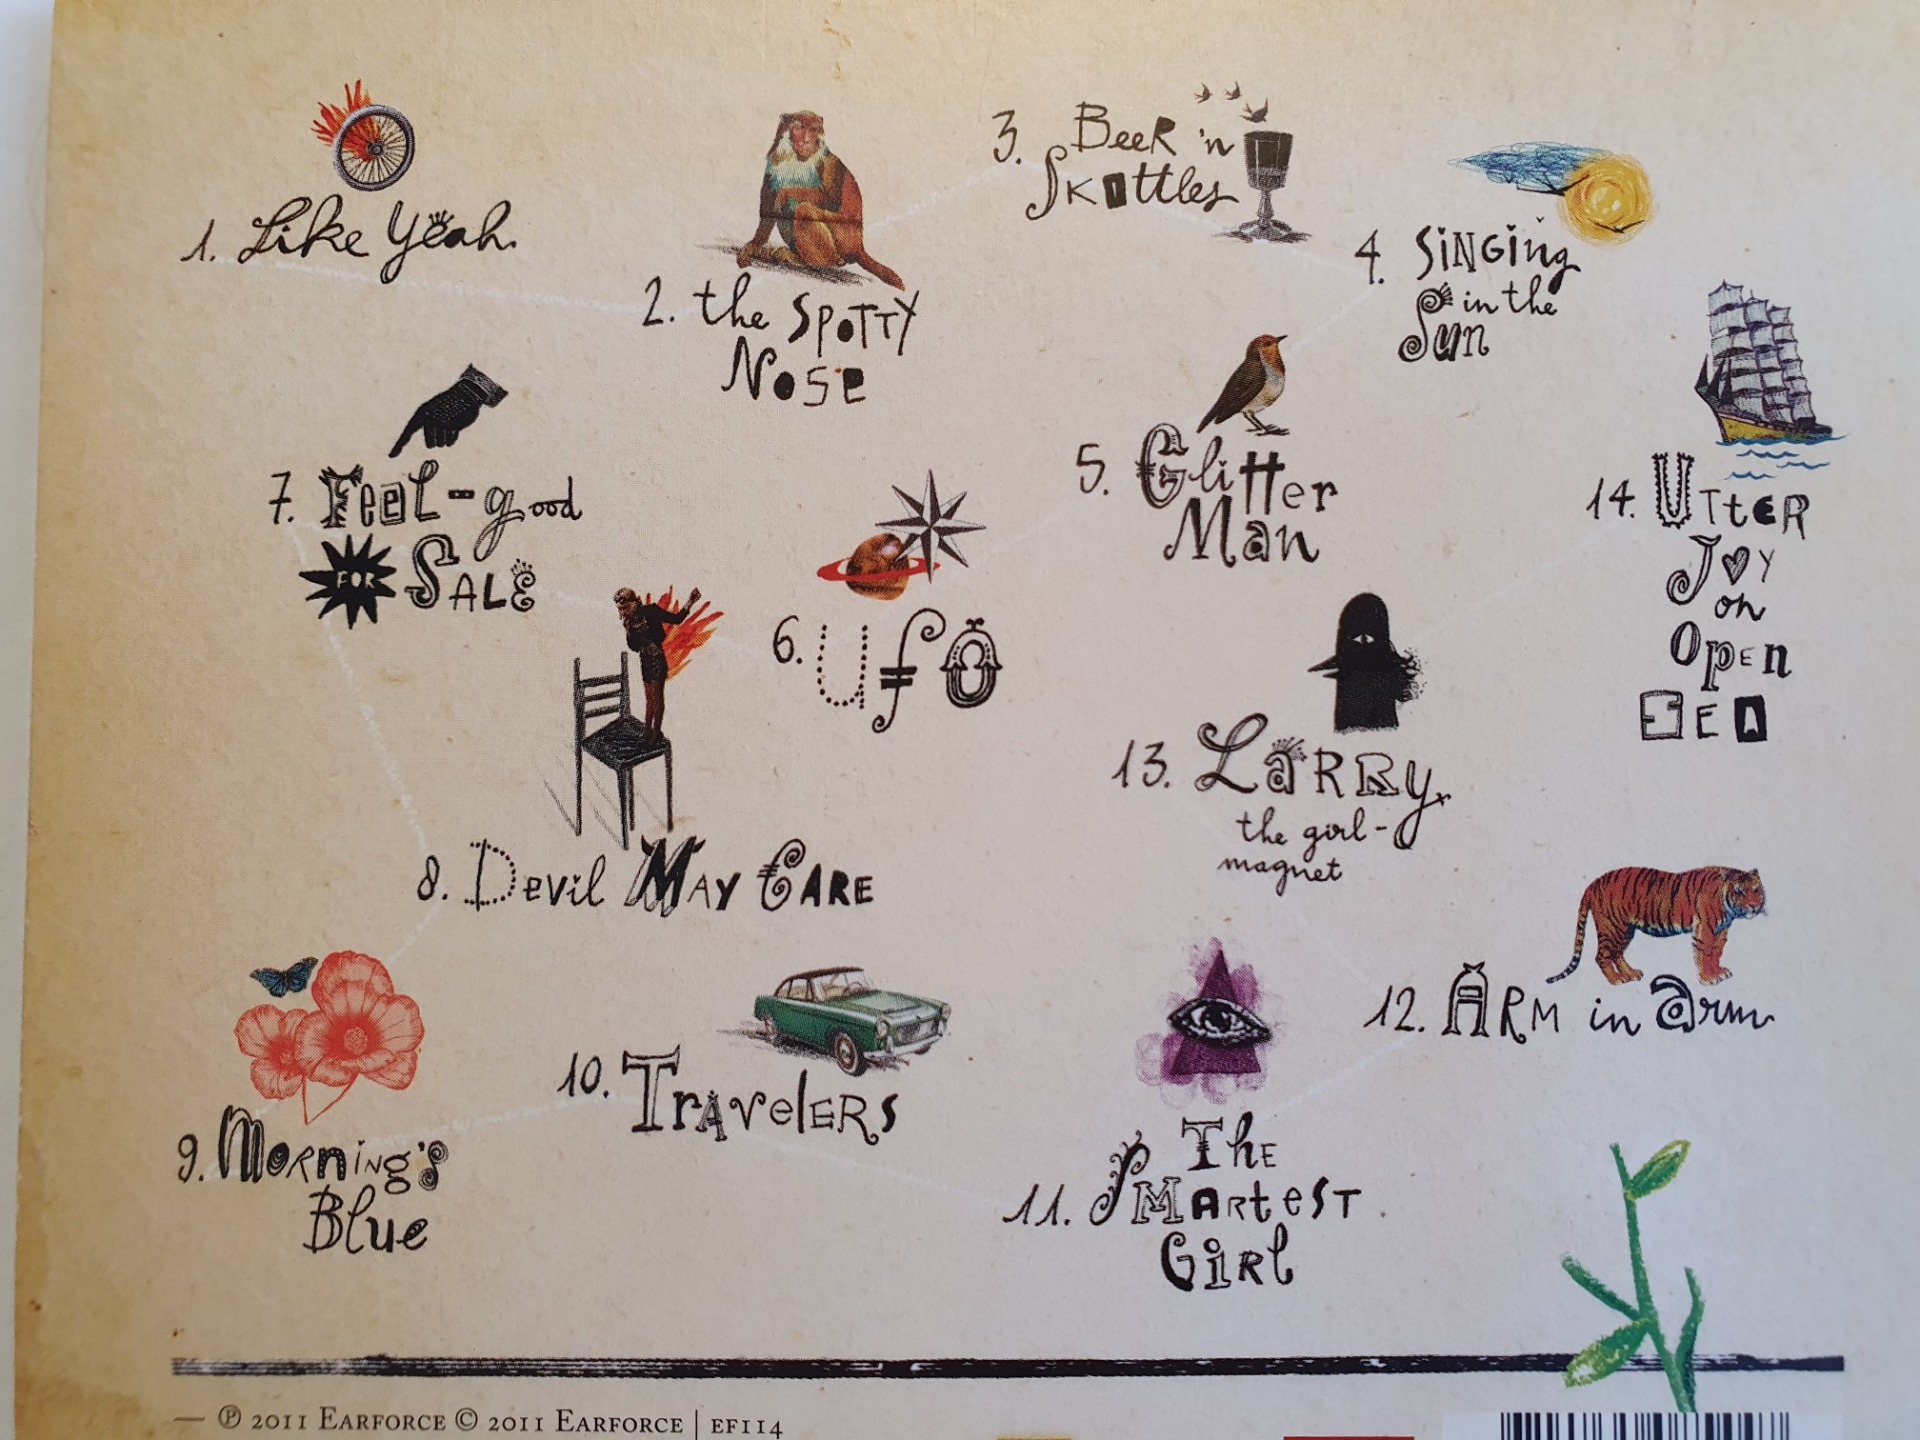 1. Like Yeah.
2. the Spotty
Nose
3. Beer 'n
Skittles
4. Singing
in the
Sun
5. Glitter
Man
6. UFO
7. Feel-good
FOR SALE
8. Devil May Care
9. Morning's
Blue
10. Travelers
11. The
Smartest
Girl
12. Arm in arm
13. Larry,
the girl-
magnet
14. Utter
Joy
on
Open
SEA
— ℗ 2011 EARFORCE © 2011 EARFORCE | EF114